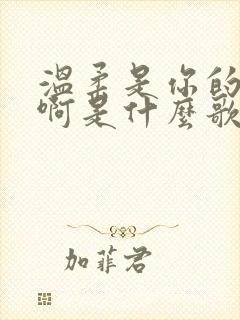 溫柔是你的
啊是什麼歌
加菲君